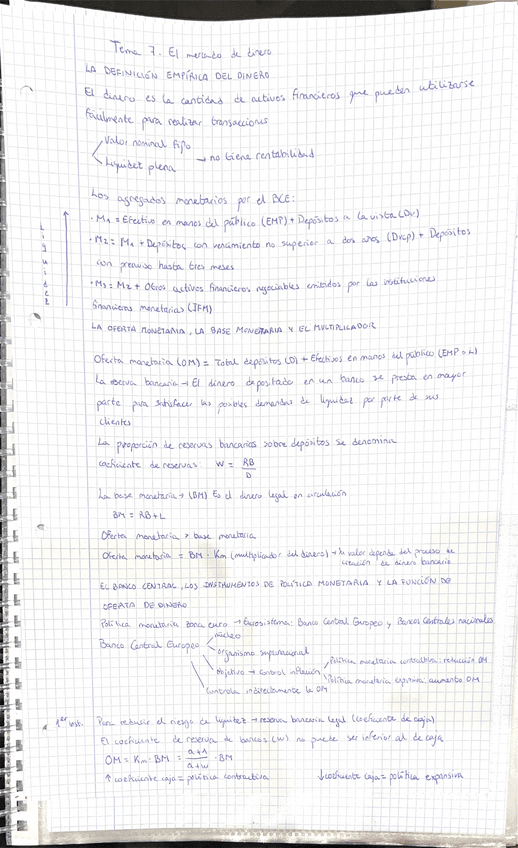 Tema 7. El mercado de dinero
LA DEFINICIÓN EMPÍRICA DEL DINERO
El dinero es la cantidad de activos financieros que pueden utilizarse
fácilmente para realizar transacciones
Valor nominal fijo
Liquidez plena → no tiene rentabilidad
Los agregados monetarios por el BCE:
Liquidez
· M1 = Efectivo en manos del público (EMP) + Depósitos a la vista (Dv)
· M2 = M1 + Depósitos con vencimiento no superior a dos años (Dvcp) + Depósitos
con preaviso hasta tres meses
· M3 = M2 + Otros activos financieros negociables emitidos por las instituciones
financieras monetarias (IFM)
LA OFERTA MONETARIA, LA BASE MONETARIA Y EL MULTIPLICADOR
Oferta monetaria (OM) = Total depósitos (D) + Efectivos en manos del público (EMP o L)
La reserva bancaria → El dinero depositado en un banco se presta en mayor
parte para satisfacer las posibles demandas de liquidez por parte de sus
clientes
La proporción de reservas bancarias sobre depósitos se denomina
coeficiente de reservas W = RB / D
La base monetaria → (BM) Es el dinero legal en circulación
BM = RB + L
Oferta monetaria > base monetaria
Oferta monetaria = BM · Km (multiplicador del dinero) → su valor depende del proceso de
creación de dinero bancario
EL BANCO CENTRAL, LOS INSTRUMENTOS DE POLÍTICA MONETARIA Y LA FUNCIÓN DE
OFERTA DE DINERO
Política monetaria zona euro → Eurosistema: Banco Central Europeo y Bancos Centrales nacionales
Banco Central Europeo
núcleo
organismo supranacional
objetivo → control inflación
Política monetaria contractiva: reducción OM
Política monetaria expansiva: aumento OM
Controla indirectamente la OM
1er inst. Para reducir el riesgo de liquidez → reserva bancaria legal (coeficiente de caja)
El coeficiente de reserva de bancos (w) no puede ser inferior al de caja
OM = Km · BM = a+1 / a+w · BM
↑ coeficiente caja = política contractiva ↓ coeficiente caja = política expansiva